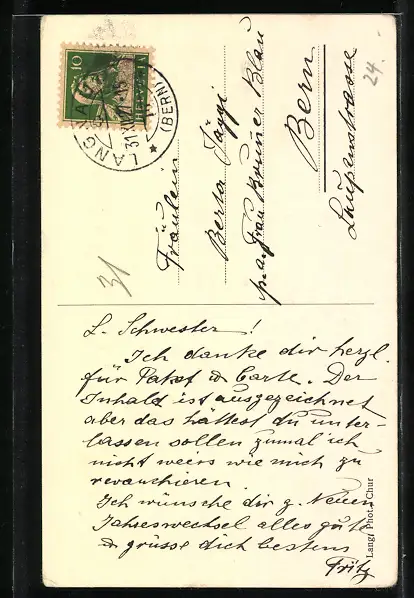 L. Schwester!
Ich danke dir herzl.
für Paket & Carte. Der
Inhald ist ausgezeichnet
aber das hättest du unter-
lassen sollen zumal ich
nicht weiss wie mich zu
revanchieren.
Ich wünsche dir z. Neuen
Jahreswechsel alles gute
& grüsse dich bestens
Fritz
Fräulein
Berta Jäggi
Frau Brunner Blau
Bern
Laupenstrasse
24.
31
10
HELVETIA
LANG
31.XII
(BERN)
Lang, Phot., Chur